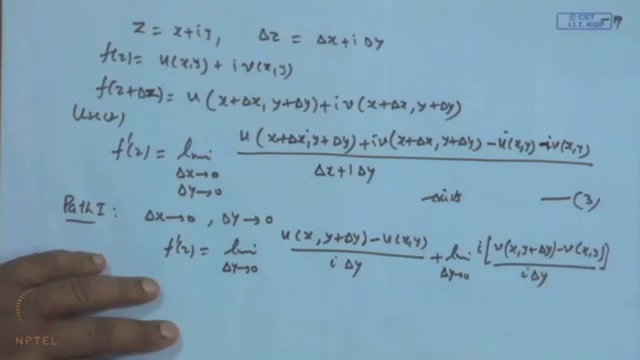 Z = x+iy, ΔZ = Δx+iΔy
f(z) = u(x,y) + i v(x,y)
f(z+Δz) = u(x+Δx, y+Δy) + i v(x+Δx, y+Δy)
f'(z) = lim Δx→0 Δy→0 u(x+Δx, y+Δy) + iv(x+Δx, y+Δy) - u(x,y) - iv(x,y) / Δx+iΔy
—(3)
Path I: Δx→0, Δy→0
f'(z) = lim Δy→0 u(x, y+Δy) - u(x,y) / iΔy + lim Δy→0 i[v(x, y+Δy) - v(x,y)] / iΔy
© CET
I.I.T. KGP
NPTEL